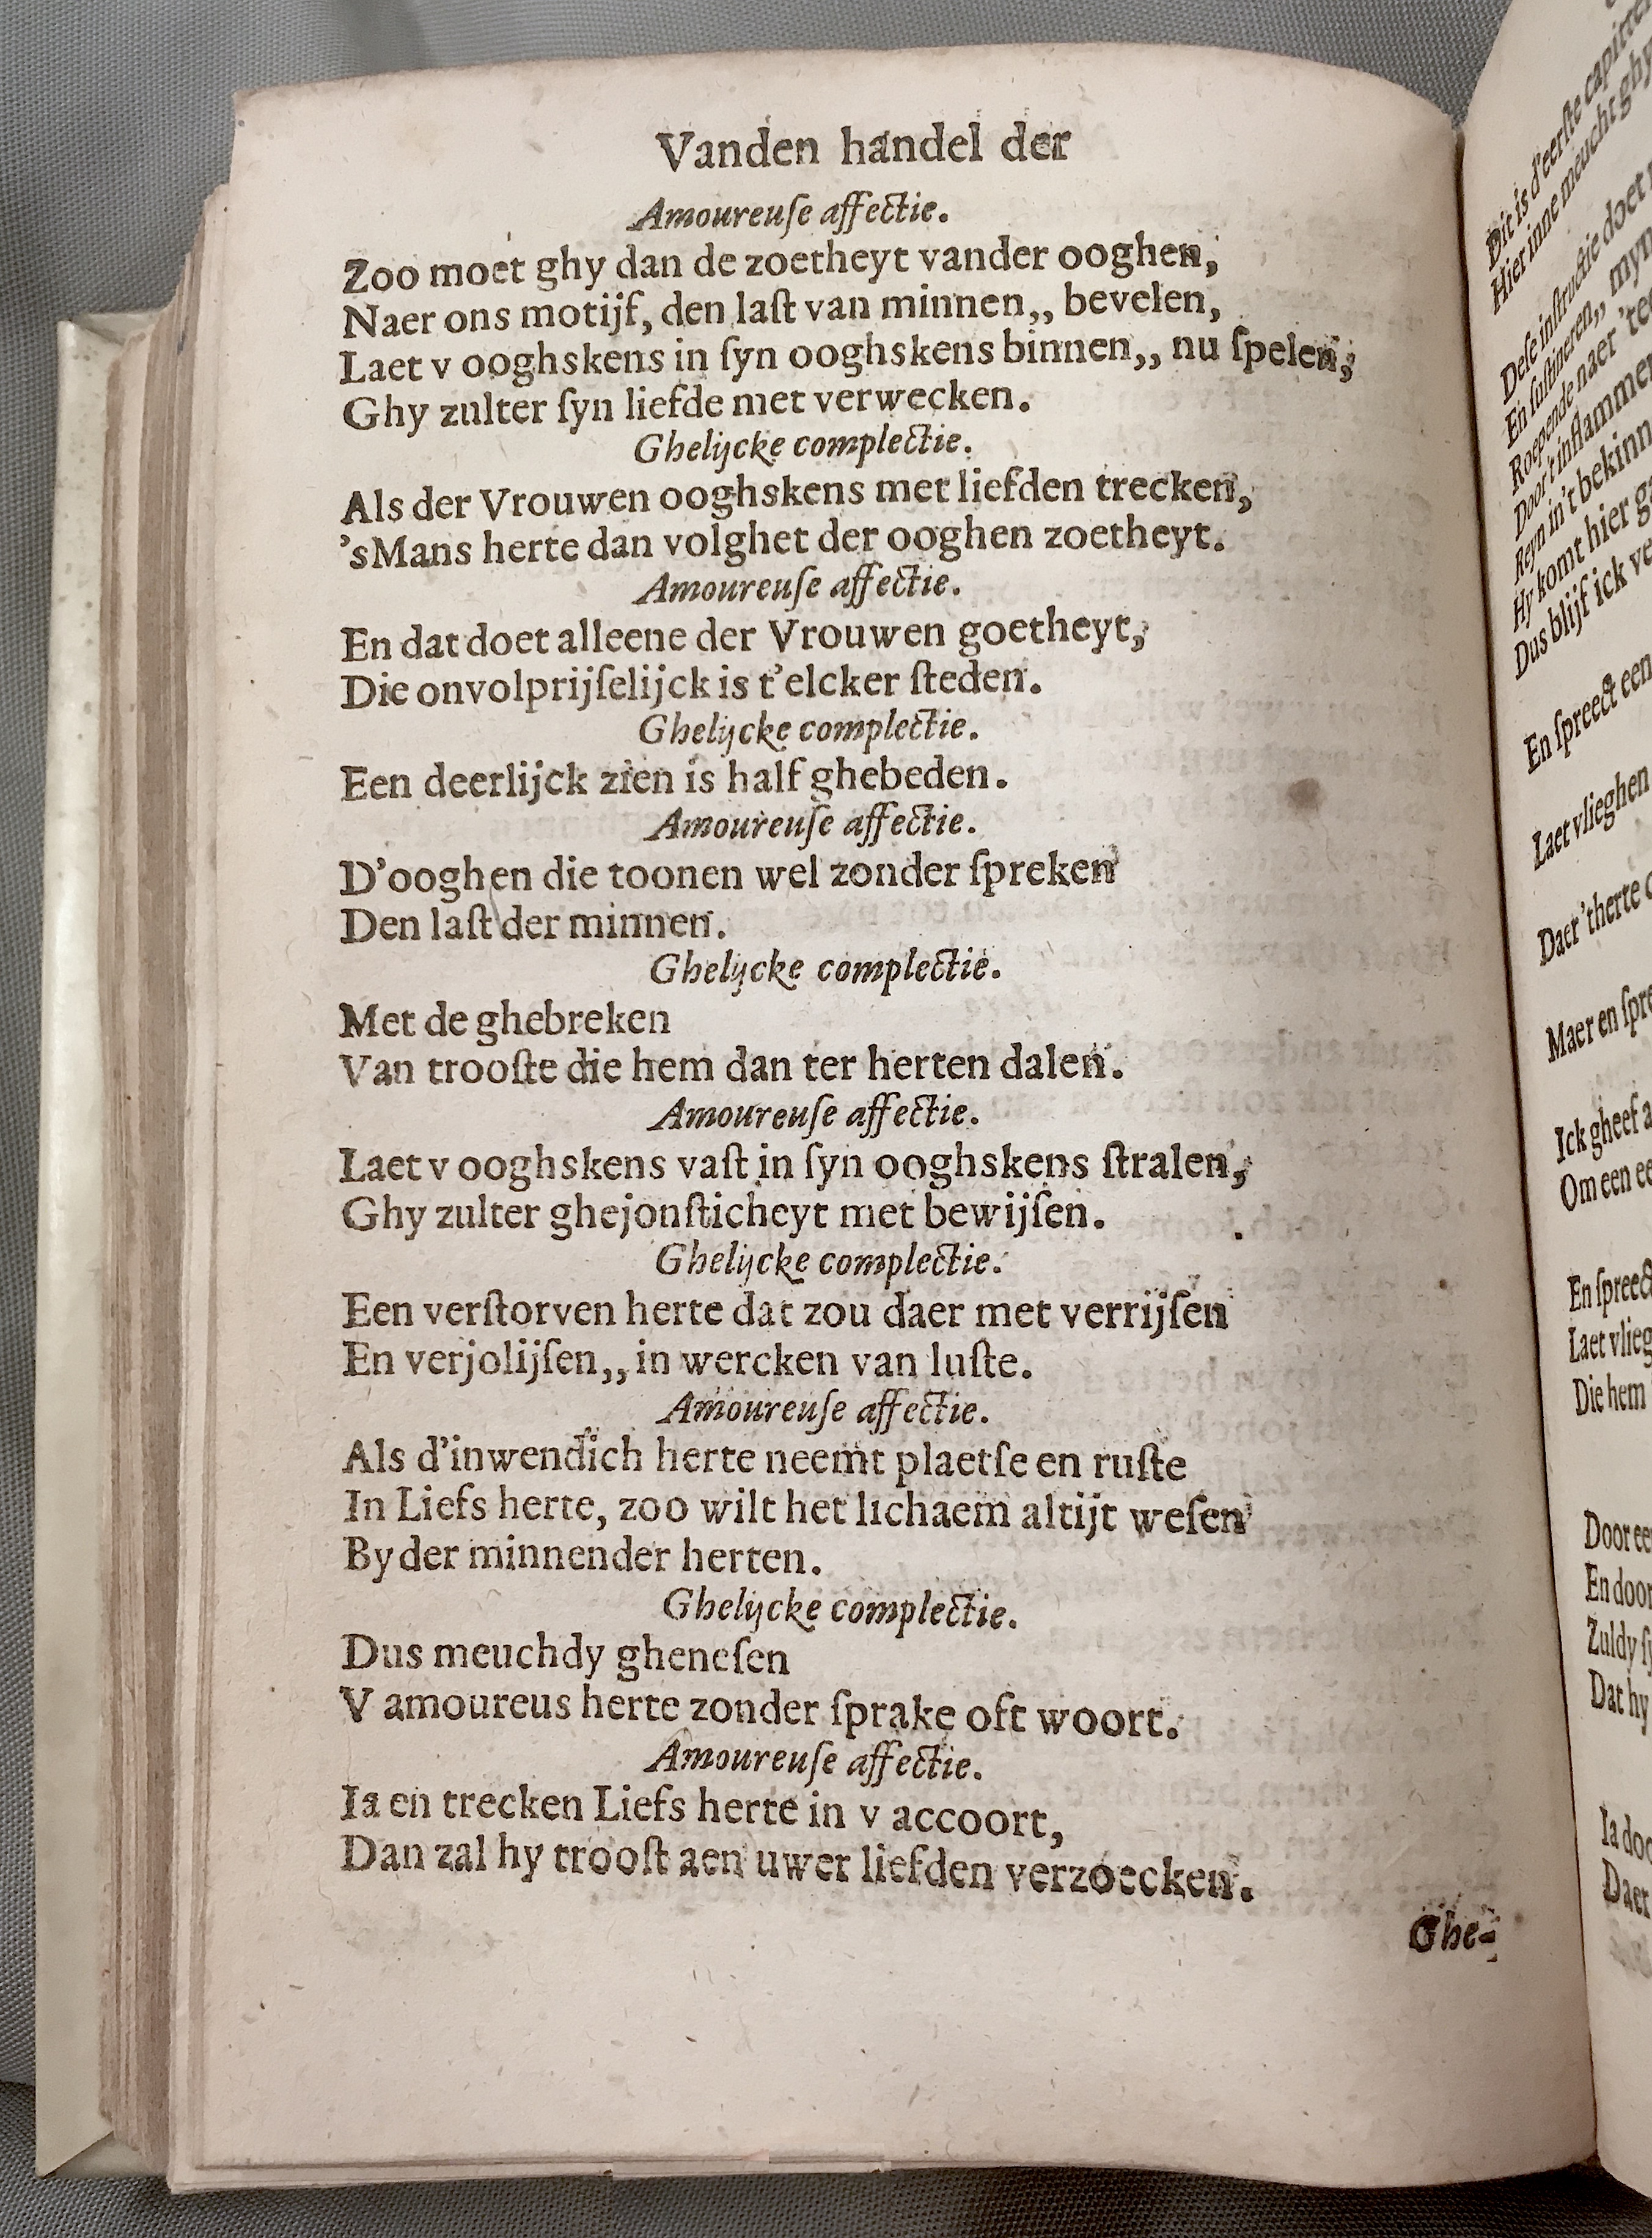 Vanden handel der
Amoureuſe affectie.
Zoo moet ghy dan de zoetheyt vander ooghen,
Naer ons motijf, den laſt van minnen,, bevelen,
Laet v ooghskens in ſyn ooghskens binnen,, nu ſpelen,
Ghy zulter ſyn liefde met verwecken.
Ghelijcke complectie.
Als der Vrouwen ooghskens met liefden trecken,
'sMans herte dan volghet der ooghen zoetheyt.
Amoureuſe affectie.
En dat doet alleene der Vrouwen goetheyt,
Die onvolprijſelijck is t'elcker ſteden.
Ghelijcke complectie.
Een deerlijck zien is half ghebeden.
Amoureuſe affectie.
D'ooghen die toonen wel zonder ſpreken
Den laſt der minnen.
Ghelijcke complectie.
Met de ghebreken
Van trooſte die hem dan ter herten dalen.
Amoureuſe affectie.
Laet v ooghskens vaſt in ſyn ooghskens ſtralen,
Ghy zulter ghejonſticheyt met bewijſen.
Ghelijcke complectie.
Een verſtorven herte dat zou daer met verrijſen
En verjolijſen,, in wercken van luſte.
Amoureuſe affectie.
Als d'inwendich herte neemt plaetſe en ruſte
In Liefs herte, zoo wilt het lichaem altijt weſen
By der minnender herten.
Ghelijcke complectie.
Dus meuchdy gheneſen
V amoureus herte zonder ſprake oft woort.
Amoureuſe affectie.
Ia en trecken Liefs herte in v accoort,
Dan zal hy trooſt aen uwer liefden verzoecken.
Ghe-
Dit is d'eerſte capittel
Hier inne meucht ghy
Deſe inſtructie doet
En ſuſtineren,, myn
Roepende naer 'te
Door't inflammer
Reyn in't bekinn
Hy komt hier
Dus blijf ick ve
En ſpreect een
Laet vlieghen
Daer 'therte
Maer en ſpre
Ick gheef a
Om een ee
En ſpreect
Laet vlieg
Die hem
Door ee
En door
Zuldy ſy
Dat hy
Ia doo
Daer